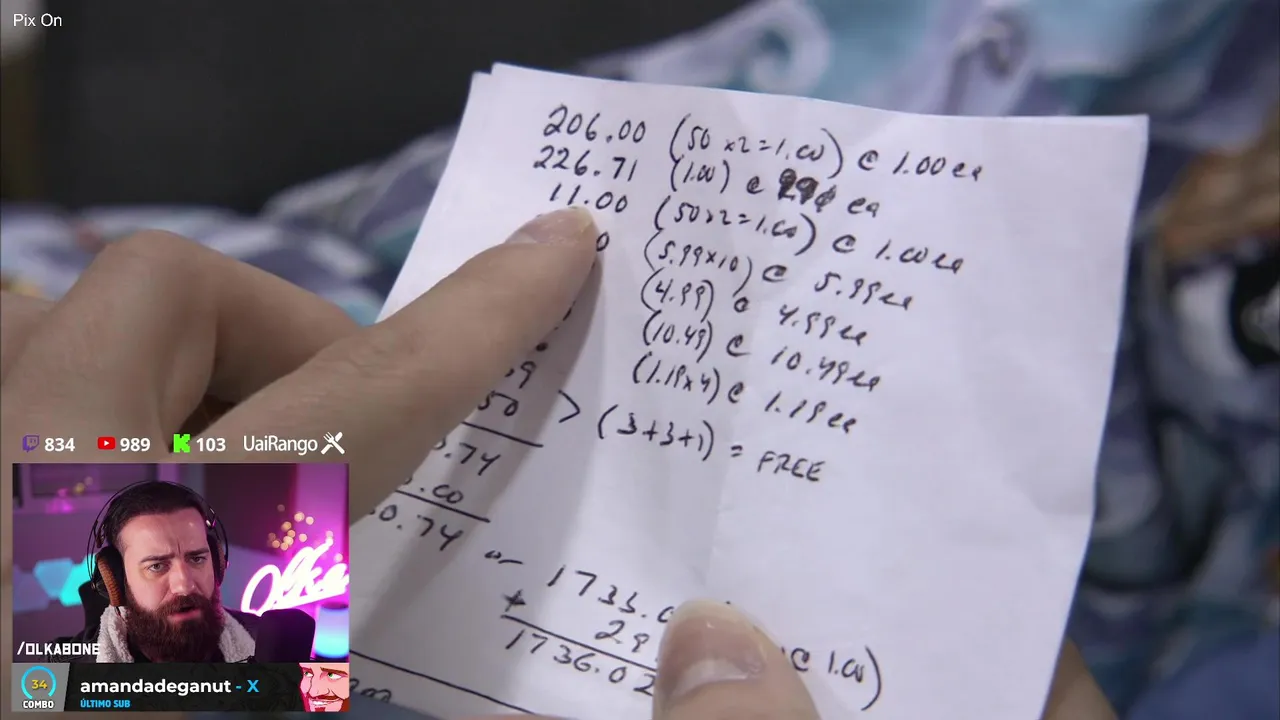 Pix On
206.00 (50 x2=1.00) @ 1.00 ea
226.71 (1.00) @ 99¢ ea
11.00 (50x2=1.00) @ 1.00 ea
0 (5.99x10) @ 5.99 ea
(4.99) @ 4.99 ea
(10.49) @ 10.49 ea
.9 (1.19x4) @ 1.19 ea
50 > (3+3+1) = FREE
.74
.00
0.74 or 1733.
+ 29 @ 1.00)
1736.02
834 989 103 UaiRango
Olka
/OLKABONE
34 COMBO
amandadeganut - X
ÚLTIMO SUB